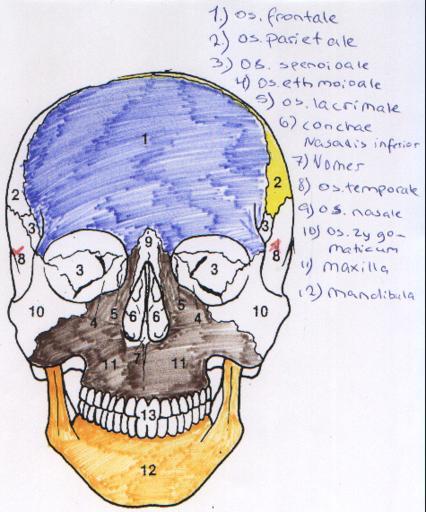 1.) os. frontale
2.) os. parietale
3.) os. spenoioale
4) os. ethmoioale
5) os. lacrimale
6) conchae
Nasadis inferior
7) Vomer
8) os. temporale
9) os. nasale
10) os. zygo-
maticum
11) maxilla
12) mandibula
1
2
2
3
3
8
8
9
3
3
10
10
5
5
4
4
6
6
7
11
11
13
12